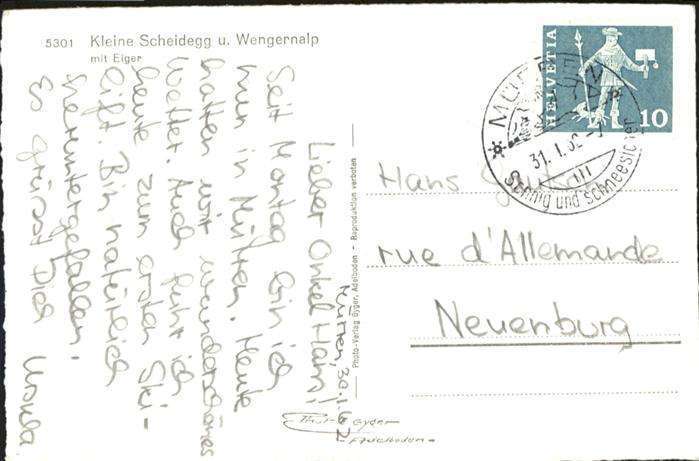 5301 Kleine Scheidegg u. Wengernalp
mit Eiger
HELVETIA
10
MÜRREN
31. I. 62
sonnig und schneesicher
Mürren 30.1.62
Lieber Onkel Hans!
Seit Montag bin ich
nun in Mürren. Heute
hatten wir wunderschönes
Wetter. Auch fuhr ich
heute zum ersten Ski-
lift. Bin natürlich
heruntergefallen.
Es grüsst Dich Ursula
Photo-Verlag Gyger, Adelboden - Reproduktion verboten
Hans
rue d'Allemande
Neuenburg
Gyger
Adelboden